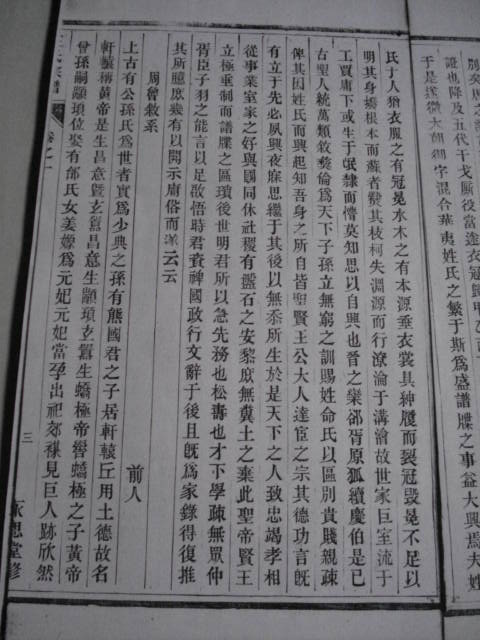 別矣周之
證也降及五代干戈厮役當塗衣冠歸
于是遂微大朝細字混合華夷姓氏之繁于斯爲盛譜牒之事益大興焉夫姓
氏于人猶衣服之有冠冕水木之有本源垂衣裳具紳履而裂冠毀冕不足以
明其身撥根本而蘇者發其枝柯失淵源而行潦淪于溝澮故世家巨室流于
工買庸下或生于氓隸而懵莫知思以自興也晉之欒郤胥原狐續慶伯是已
古聖人統萬類敘彝倫爲天下子孫立無窮之訓賜姓命氏以區別貴賤親疎
俾其因姓氏而興起知吾身之所自皆聖賢王公大人達宦之宗其德功言旣
有立于先必夙興夜寐思繼于其後以無忝所生於是天下之人致忠竭孝相
從事業室家之好與國同休社稷有盤石之安黎庶無冀土之棄此聖帝賢王
立極垂制而譜牒之區瑣後世明君所以急先務也松壽也才下學疎無眾仲
胥臣子羽之能言以足啟悟時君賛禆國政行文辭于後且旣爲家錄得復推
其所臆庶幾有以開示庸俗而遂云云
周曾敘系
前人
上古有公孫氏爲世者實爲少典之孫有熊國君之子居軒轅丘用土德故名
軒轅稱黃帝是生昌意暨玄囂昌意生顓頊玄囂生蟜極帝嚳蟜極之子黃帝
曾孫嗣顓頊位娶有邰氏女姜嫄爲元妃元妃當孕出祀郊禖見巨人跡欣然
卷之一
三
永思堂修